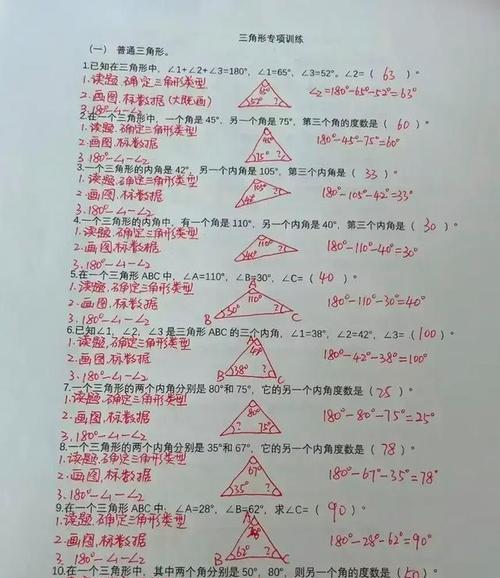 三角形专项训练
（一） 普通三角形。
1.已知在三角形中，∠1+∠2+∠3=180°，∠1=65°，∠3=52°。∠2=（ 63 ）°
1.读题.确定三角形类型
2.画图.标数据(大概画)
3.180°-∠1-∠2
65° ? 52°
∠2=180°-65°-52°=63°
2.在一个三角形中，一个角是45°，另一个角是75°，第三个角的度数是（ 60 ）°
1.读题.确定三角形类型
2.画图.标数据
3.180°-∠1-∠2
45° 75° ?
180°-45°-75°=60°
3.一个三角形的内角是42°，另一个内角是105°，第三个内角是（ 33 ）°
1.读题.确定三角形类型
2.画图.标数据
3.180°-∠1-∠2
105° 42° ?
180°-105°-42°=33°
4.一个三角形的内角中，有一个角是110°，另一个内角是40°，第三个内角是（ 30 ）°
1.读题.确定三角形类型
2.画图.标数据
3.180°-∠1-∠2
110° 40° ?
180°-110°-40°=30°
5.在一个三角形 ABC 中，∠A=110°，∠B=30°，∠C=（ 40 ）°
1.读题.确定三角形类型
2.画图.标数据
3.180°-∠1-∠2
A 110° B 30° ? C
180°-110-30=40°
6.已知∠1，∠2，∠3是三角形 ABC 的三个内角，∠1=38°，∠2=42°，∠3=（100）°
1.读题.确定三角形类型
2.画图.标数据
3.180°-∠1-∠2
A 42° B 38° ? C
180°-42°-38°=100°
7.一个三角形的两个内角分别是80°和75°，它的另一个内角度数是（ 25 ）°
1.读题.确定三角形类型
2.画图.标数据
3.180°-∠1-∠2
80° 75° ?
180°-80°-75°=25°
8.一个三角形的两个内角分别是35°和67°，它的另一个内角度数是（ 78 ）°
1.读题.确定三角形类型
2.画图.标数据
3.180°-∠1-∠2
67° 35° ?
180°-67-35°=78°
9.在一个三角形 ABC 中，∠A=28°，∠B=62°，求∠C=（ 90 ）°
1.读题.确定三角形类型
2.画图.标数据
3.180°-∠1-∠2
A B 62° ? C
180°-28-62°=90°
10.在一个三角形中，其中两个角分别是50°，80°，则另一个角的度数是（50）°